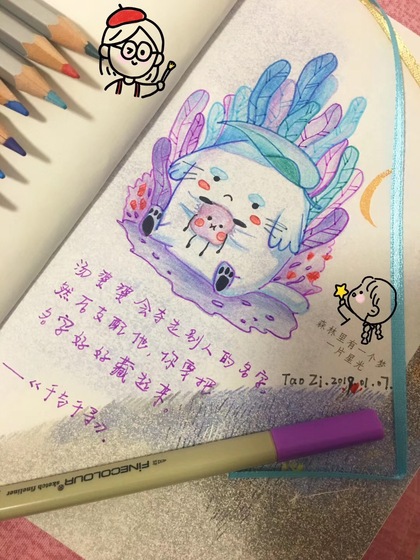 汤婆婆会夺走别人的名字
然后支配他,你要把
名字好好藏起来。
——《千与千寻》.
森林里有一个梦
一片星光
Tao Zi.2019.01.07.
FINECOLOUR® sketch fineliner